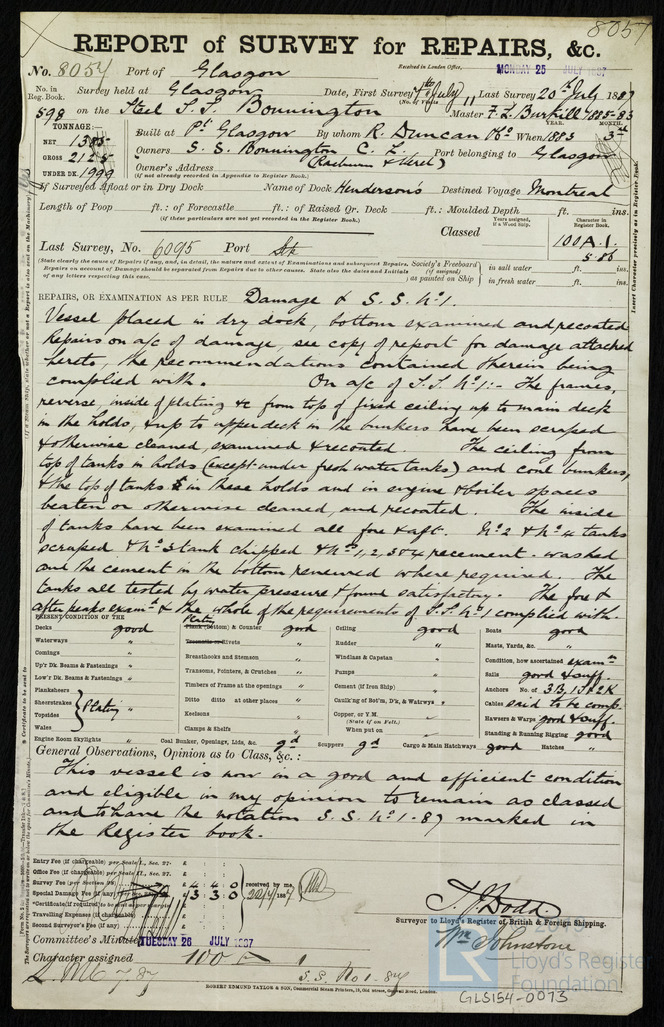 8057
REPORT of SURVEY for REPAIRS, &c.
No. 8057 Port of Glasgow Received in London Office, MONDAY 25 JULY 1887
No. in Reg. Book. Survey held at Glasgow Date, First Survey 7th July Last Survey 20th July 1887
(No. of Visits 11)
598 on the Steel S.S. Bonnington Master F. L. Burkill 1885-83
TONNAGE:
NET 1385
GROSS 2125
UNDER DK. 1999
Built at Pt. Glasgow By whom R. Duncan & Co When 1883 YEAR. MONTH. 3rd
Owners S.S. Bonnington C. L. Port belonging to Glasgow
Owner's Address
(If not already recorded in Appendix to Register Book.)
If Surveyed Afloat or in Dry Dock Name of Dock Henderson's Destined Voyage Montreal
Length of Poop ft.: of Forecastle ft.: of Raised Qr. Deck ft.: Moulded Depth ft. ins.
(If these particulars are not yet recorded in the Register Book.)
Classed Years assigned, if a Wood Ship. Character in Register Book.
100 A.1.
5.86
Last Survey, No. 6095 Port
(State clearly the cause of Repairs if any, and, in detail, the nature and extent of Examinations and subsequent Repairs. Repairs on account of Damage should be separated from Repairs due to other causes. State also the dates and Initials of any letters respecting this case.
Society's Freeboard (if assigned) as painted on Ship
in salt water ft. ins.
in fresh water ft. ins.
Insert Character precisely as in Register Book.
REPAIRS, OR EXAMINATION AS PER RULE Damage & S.S. No 1.
Vessel placed in dry dock, bottom examined and recoated
Repairs on a/c of damage, see copy of report for damage attached
hereto, the recommendations contained therein being
complied with. On a/c of S.S. No 1:- The frames,
reverse, inside of plating &c from top of fixed ceiling up to main deck
in the holds, & up to upper deck in the bunkers have been scraped
& otherwise cleaned, examined & recoated. The ceiling from
top of tanks in holds (except under fresh water tanks) and coal bunkers,
& the top of tanks in these holds and in engine & boiler spaces
beaten or otherwise cleaned, and recoated. The inside
of tanks have been examined all fore & aft. No 2 & No 4 tanks
scraped & No 3 tank chipped & Nos 1, 2, 3 & 4 recement-washed
and the cement in the bottom renewed where required. The
tanks all tested by water pressure & found satisfactory. The fore &
after peaks examd & the whole of the requirements of S.S. No 1 complied with.
PRESENT CONDITION OF THE
Decks good
Waterways "
Comings "
Up'r Dk. Beams & Fastenings "
Low'r Dk. Beams & Fastenings "
Planksheers
Sheerstrakes
Topsides
Wales
Plating "
Engine Room Skylights "
Plating
Plank (Bottom) & Counter good
Treenails or Rivets "
Breasthooks and Stemson "
Transoms, Pointers, & Crutches "
Timbers of Frame at the openings "
Ditto ditto at other places "
Keelsons "
Clamps & Shelfs "
Coal Bunker, Openings, Lids, &c. gd
Ceiling good
Rudder "
Windlass & Capstan "
Pumps "
Cement (if Iron Ship) "
Caulk'ng of Bot'm, D'k, & Watrwys "
Copper, or Y.M.
(State if on Felt.)
When put on
Scuppers gd Cargo & Main Hatchways good Hatches "
Boats good
Masts, Yards, &c. "
Condition, how ascertained examn
Sails good & suff.
Anchors No. of 3B, 1S & 2K
Cables said to be comp.
Hawsers & Warps good & suff.
Standing & Running Rigging good
General Observations, Opinion as to Class, &c.:
This vessel is now in a good and efficient condition
and eligible in my opinion to remain as classed
and to have the notation S.S. No 1-87 marked in
the Register book.
Entry Fee (if chargeable) per Scale I., Sec. 27. £
Office Fee (if chargeable) per Scale I., Sec. 27. £
Survey Fee (per Section 28) £ 4 4 0
Special Damage Fee (if any) £ 3 3 0
received by me, 20/7/1887
Travelling Expenses (if chargeable) £
Second Surveyor's Fee (if any) £
Committee's Minute TUESDAY 26 JULY 1887
Character assigned 100 A 1
L.M.C. 7.87
S.S. No 1-87
T. J. Dodd
Surveyor to Lloyd's Register of British & Foreign Shipping.
Wm Johnstone
ROBERT EDMUND TAYLOR & SON, Commercial Steam Printers, 19, Old Street, Goswell Road, London.
LR
Lloyd's Register
Foundation
GLS154-0073